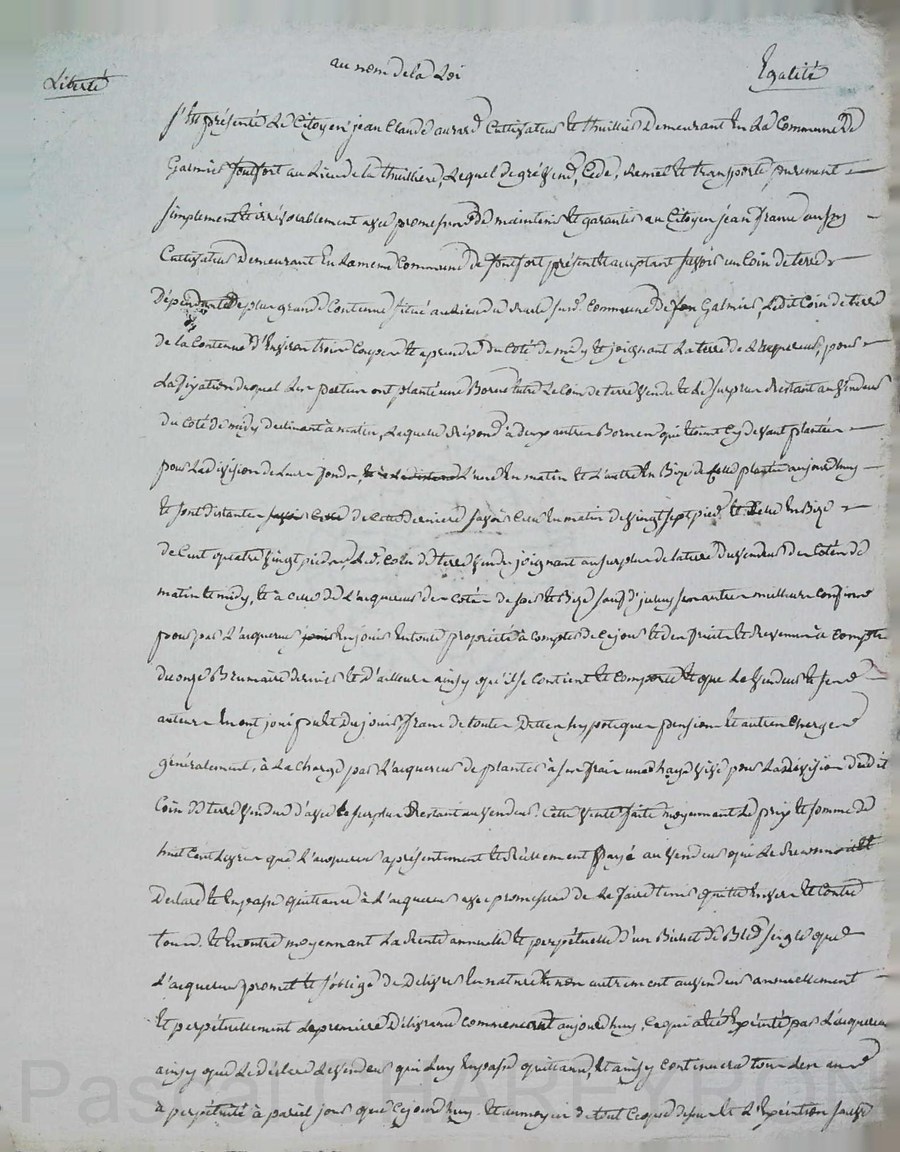 Liberté au nom de la Loi Egalité
S'est présenté Le Citoyen jean Claude Cultivateur et thuillier Demeurant En La Commune De
Galmier fontfort au Lieu de la thuilliere, Lequel de gré Vend, Cede, Remet et transporte purement
simplement et irrévocablement avec promesse de maintenir et garantir au Citoyen jean
Cultivateur Demeurant En La meme Commune de fontfort présent et acceptant savoir un Coin de terre
Dépendante De plus grande Contenue situé au Lieu du susd. Commune De fon Galmier, Ledit Coin de terre
de la Contenue d'Environ trois Coupes et a prendre du Coté de midy et joignant La terre de L'acquereur, pour
La fixation duquel Les parties ont planté une Borne Entre Le Coin de terre Vendu et Le surplus Restant au Vendeur
du Coté de midy declinant à matin, Laquelle Répond à deux autres Bornes qui Cy devant plantées
pour La division de Leurs fonds, L'une En matin et L'autre En Bize de Celle plantée aujourd'huy
et sont distantes de Cette derniere savoir Celle En matin de Vingt sept pieds et Celle En Bize
de Cent quatre Vingt pieds, Led. Coin de terre Vendu joignant au surplus de la terre Du Vendeur Des Cotés de
matin et midy, et à Celle de L'acquereur des Cotés de soir et Bize sauf d'yceux ses autres meilleurs Confins
pour par L'acquereur En jouir En toute propriété à Compter de Ce jour et des fruits et Revenus à Compter
du onze Brumaire dernier et d'ailleurs ainsy qu'il se Contient et Comporte et que Le Vendeur et ses
auteurs En ont joui pu et Du jouir franc de toutes Dettes hypoteques pensions et autres Charges
généralement, à La Charge par L'acquereur de planter à ses frais une haye Vive pour La division dudit
Coin de terre Vendu d'avec Le surplus Restant au Vendeur. Cette Vente faite moyennant Le prix et somme de
huit Cent Livres que L'acquereur a présentement et Réellement payé au Vendeur qui Le
Declare et En passe quittance à L'acquereur avec promesse de Le faire tenir quitte Envers et Contre
tous. Et En outre moyennant La Rente annuelle et perpétuelle d'un Bichet de Bled seigle que
L'acquereur promet et s'oblige de Delivrer En nature et non autrement au Vendeur annuellement
Et perpétuellement La premiere Délivrance Commencant aujourd'huy, Ce qui a été Exécuté par L'acquereur
ainsy que Le déclare Le Vendeur qui Luy En passe quittance, et ainsy Continuera tous Les ans
à perpétuité à pareil jour que Cejourd'huy. Et au moyen de tout Ce que dessus et de L'Exécution
Pascal CHAREYRON